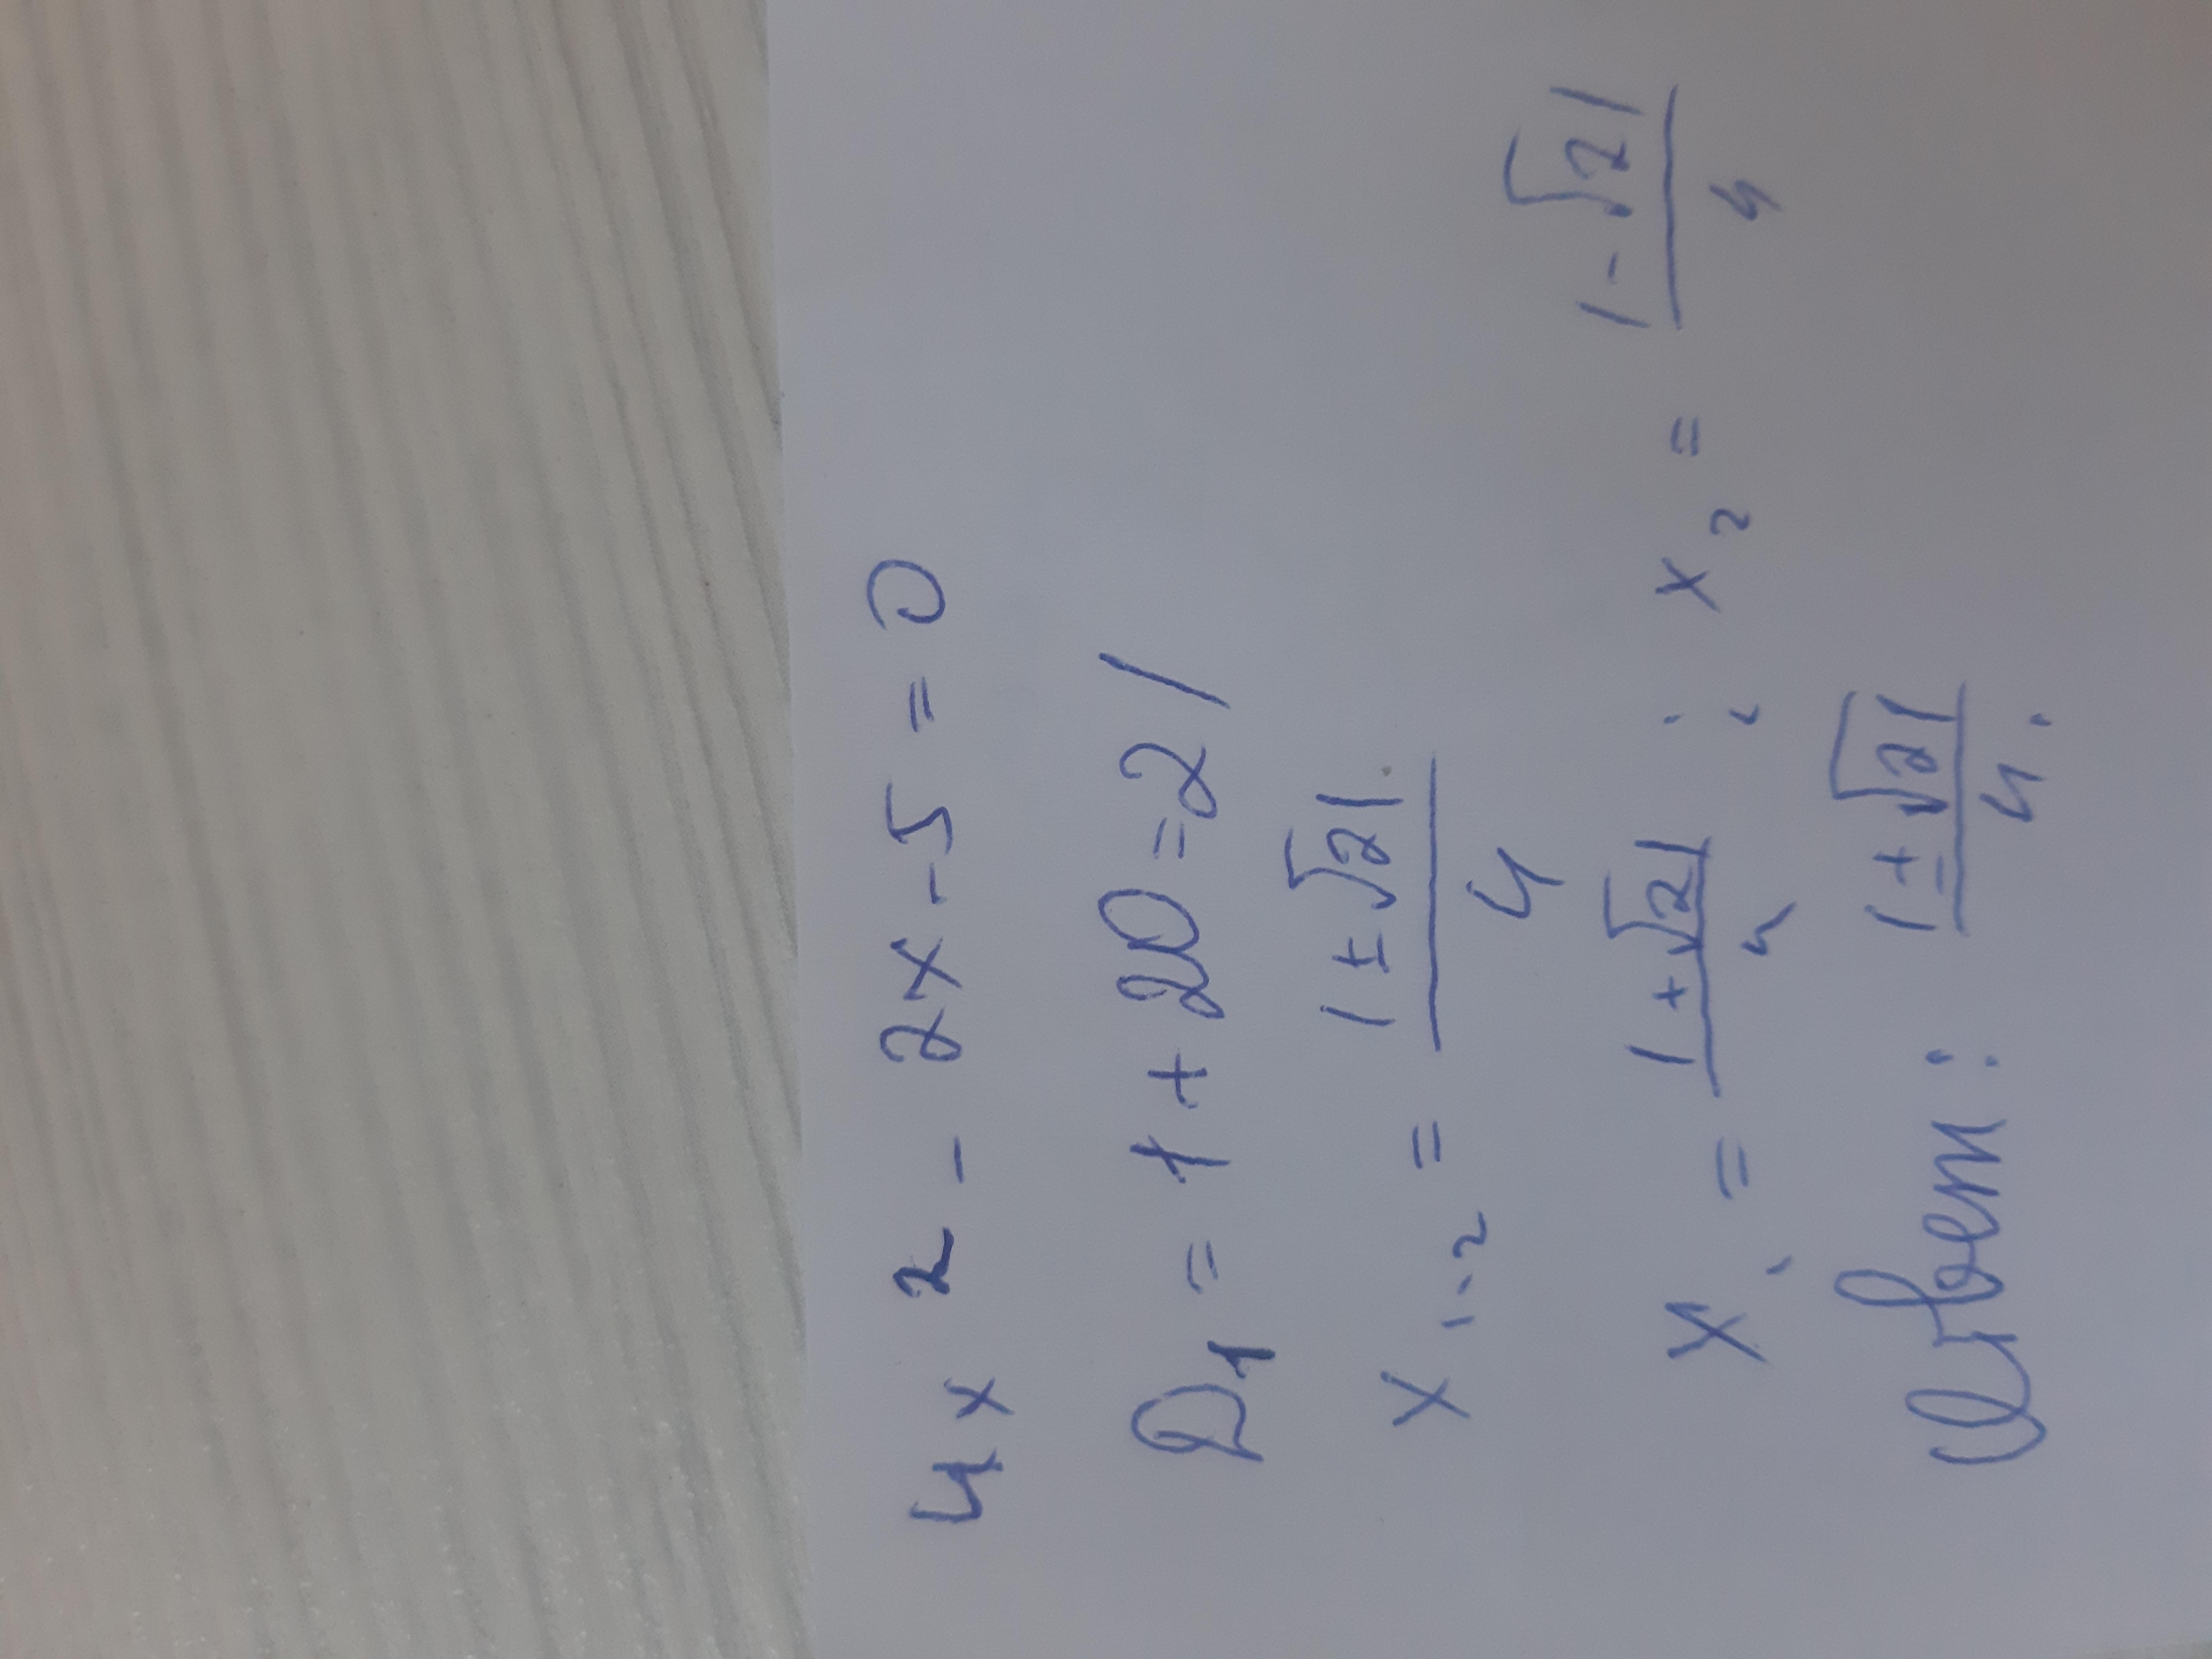 4x² - 2x - 5 = 0
D₁ = 1 + 20 = 21
x₁,₂ = (1 ± √21)/4
x₁ = (1 + √21)/4 ; x₂ = (1 - √21)/4
Ответ: (1 ± √21)/4.